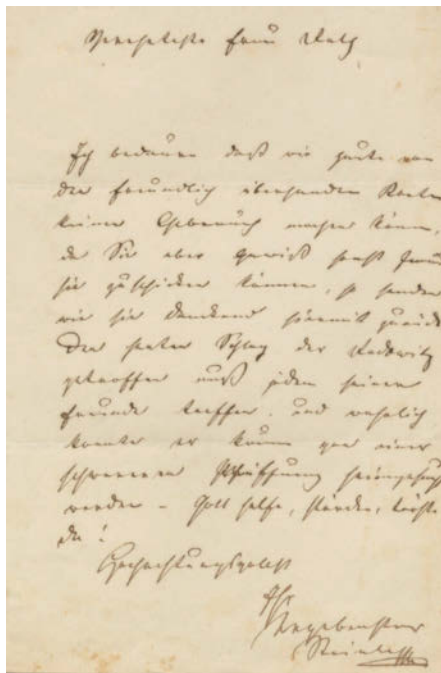 Verehrteste Frau Rath
Ich bedaure daß wir heute von
der freundlich übersandten Karten
keinen Gebrauch machen können,
da Sie aber gewiß sonst Jemand
sie zuschicken können, so senden
wir sie dankend hiermit zurück
Der harte Schlag der Radowitz
getroffen muß jeden seiner
Freunde treffen. und wahrlich
konnte er kaum von einer
schwereren Prüfung heimgesucht
werden – Gott helfe, stärke, tröste
da!
Hochachtungsvollst
Ihr
Ergebenster
Steinle